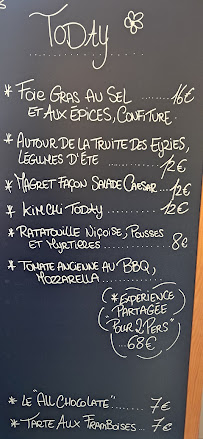 TODAY
* FOIE GRAS AU SEL ........ 16€
ET AUX ÉPICES, CONFITURE.
* AUTOUR DE LA TRUITE DES EYZIES,
LÉGUMES D'ÉTÉ ......... 12€
* MAGRET FAÇON SALADE CAESAR... 12€
* KIMCHI TODAY ............ 12€
* RATATOUILLE NIÇOISE, POUSSES
ET MYRTILLES ........... 8€
* TOMATE ANCIENNE AU BBQ,
MOZZARELLA ...........
* EXPERIENCE
PARTAGÉE
"POUR 2 PERS"
...68€...
* LE "ALL CHOCOLATE" ....... 7€
* TARTE AUX FRAMBOISES... 7€